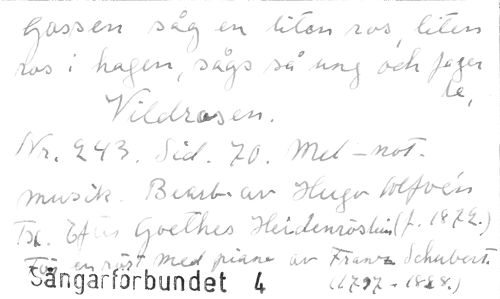 Gossen såg en liten ros, liten
ros i hagen, sågs så ung och fager
le,
Vildrosen.
Nr. 243. Sid. 70. Mel-not.
musik. Bearb. av Hugo Alfvén
Tx. Efter Goethes Heidenröslein (f. 1872.)
För en röst med piano av Franz Schubert.
Sångarförbundet 4
(1797-1828.)